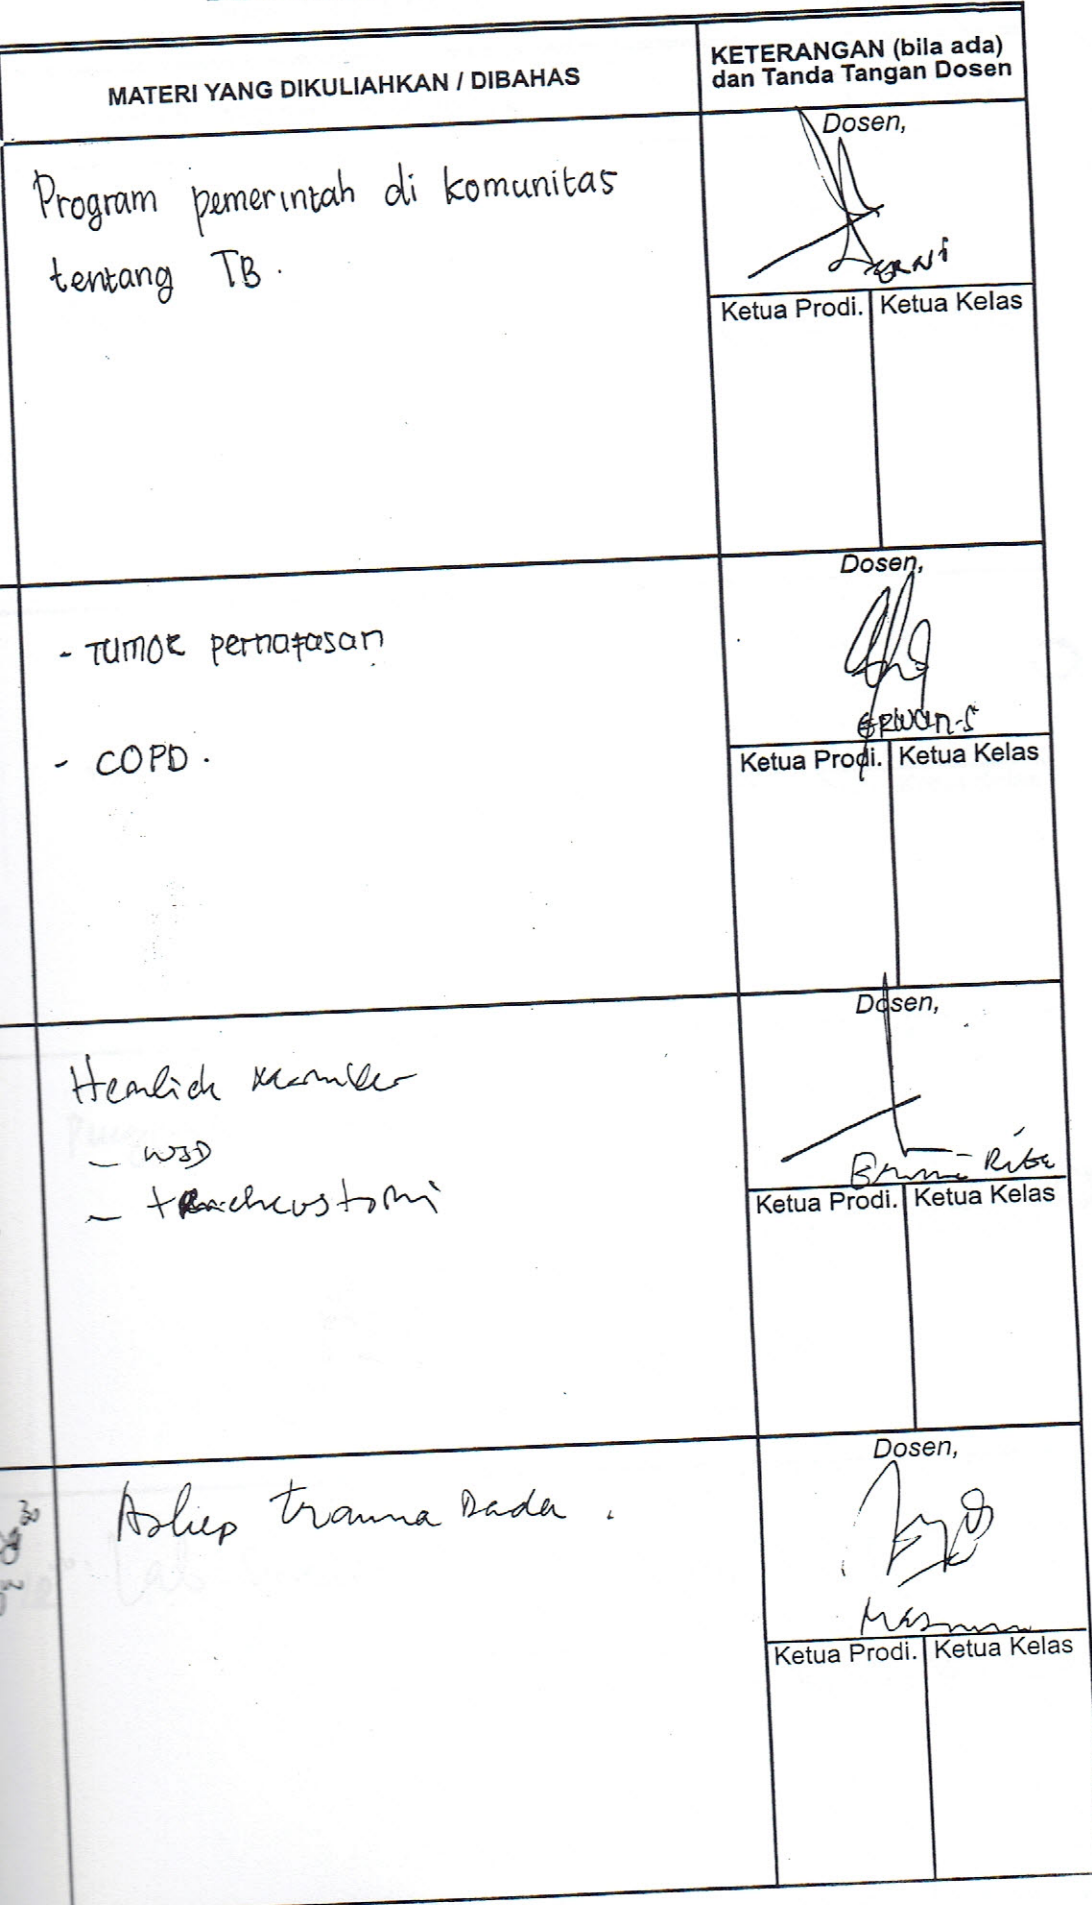 MATERI YANG DIKULIAHKAN / DIBAHAS
KETERANGAN (bila ada)
dan Tanda Tangan Dosen
Program pemerintah di komunitas
tentang TB.
Dosen,
Ketua Prodi. Ketua Kelas
- TUMOR pernafasan
- COPD.
Dosen,
ERWan-S
Ketua Prodi. Ketua Kelas
Hemlich
- WSD
- tracheostomi
Dosen,
Ketua Prodi. Ketua Kelas
Askep trauma Dada.
Dosen,
Ketua Prodi. Ketua Kelas